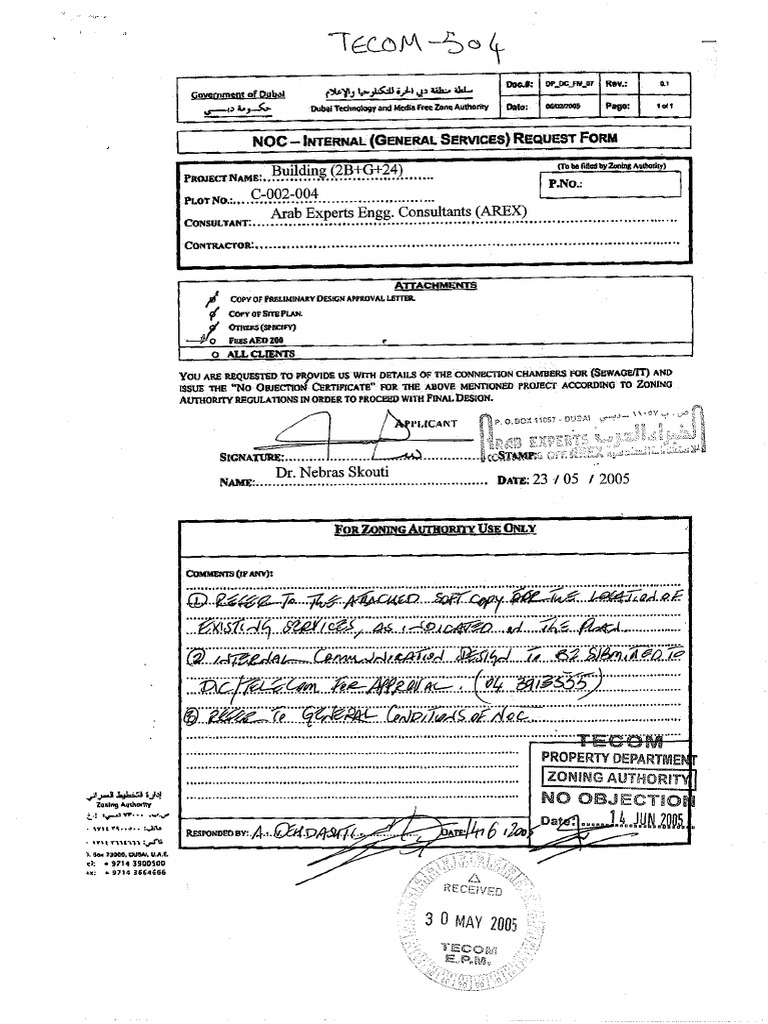 TECOM-504
Government of Dubai
حكومة دبي
سلطة منطقة دبي الحرة للتكنولوجيا والإعلام
Dubai Technology and Media Free Zone Authority
Doc.#: DP_DC_FM_07 Rev.: 0.1
Date: 06/02/2005 Page: 1 of 1
NOC – INTERNAL (GENERAL SERVICES) REQUEST FORM
PROJECT NAME: Building (2B+G+24)
(To be filled by Zoning Authority)
P.NO.:
PLOT NO.: C-002-004
CONSULTANT: Arab Experts Engg. Consultants (AREX)
CONTRACTOR:
ATTACHMENTS
COPY OF PRELIMINARY DESIGN APPROVAL LETTER.
COPY OF SITE PLAN.
OTHERS (SPECIFY)
FEES AED 200
ALL CLIENTS
YOU ARE REQUESTED TO PROVIDE US WITH DETAILS OF THE CONNECTION CHAMBERS FOR (SEWAGE/IT) AND
ISSUE THE "NO OBJECTION CERTIFICATE" FOR THE ABOVE MENTIONED PROJECT ACCORDING TO ZONING
AUTHORITY REGULATIONS IN ORDER TO PROCEED WITH FINAL DESIGN.
APPLICANT
P.O.BOX 11057 - DUBAI ص.ب ١١٠٥٧ - دبي
ARAB EXPERTS الخبراء العرب
SIGNATURE: STAMP:
NAME: Dr. Nebras Skouti DATE: 23 / 05 / 2005
FOR ZONING AUTHORITY USE ONLY
COMMENTS (IF ANY):
① REFER TO THE ATTACHED SOFT COPY FOR THE LOCATION OF
EXISTING SERVICES, AS INDICATED ON THE PLAN.
② INTERNAL COMMUNICATION DESIGN TO BE SUBMITTED TO
D.C/TELECOM FOR APPROVAL. (04 3913555)
③ REFER TO GENERAL CONDITIONS OF NOC
TECOM
PROPERTY DEPARTMENT
ZONING AUTHORITY
NO OBJECTION
Date: 14 JUN 2005
إدارة التخطيط العمراني
Zoning Authority
RESPONDED BY: DATE: 14/6/2005
Box 73000, DUBAI, U.A.E.
+ 9714 3900500
+ 9714 3664666
RECEIVED
30 MAY 2005
TECOM
E.P.M.